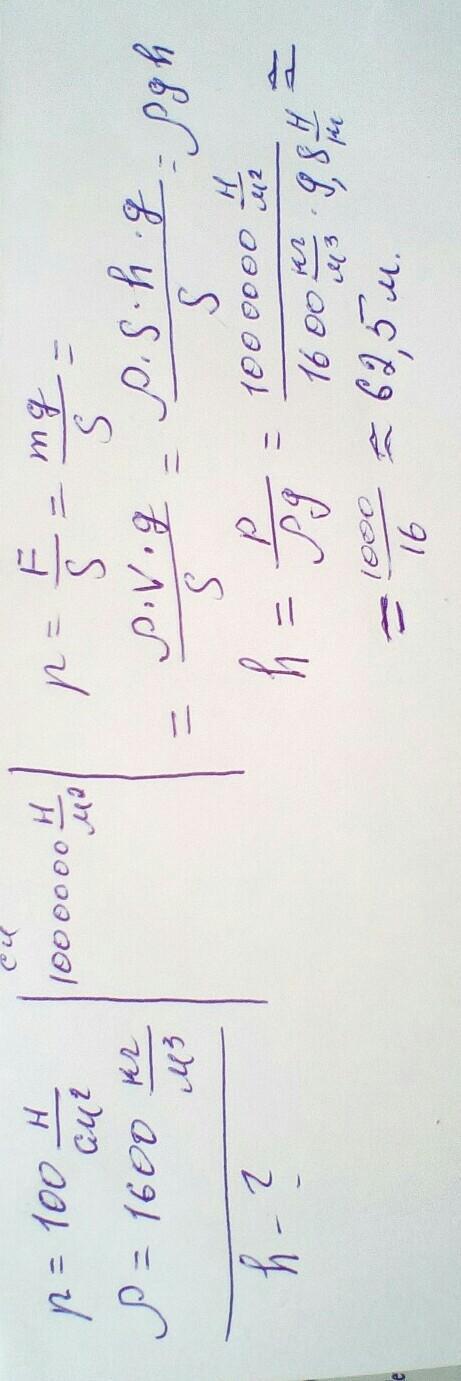 p = 100 Н/см²
ρ = 1600 кг/м³
h - ?
си
1000000 Н/м²
p = F/S = mg/S =
= ρ·V·g/S = ρ·S·h·g/S = ρgh
h = p/ρg = 1000000 Н/м² / 1600 кг/м³ · 9,8 Н/кг ≈
= 1000/16 ≈ 62,5 м.